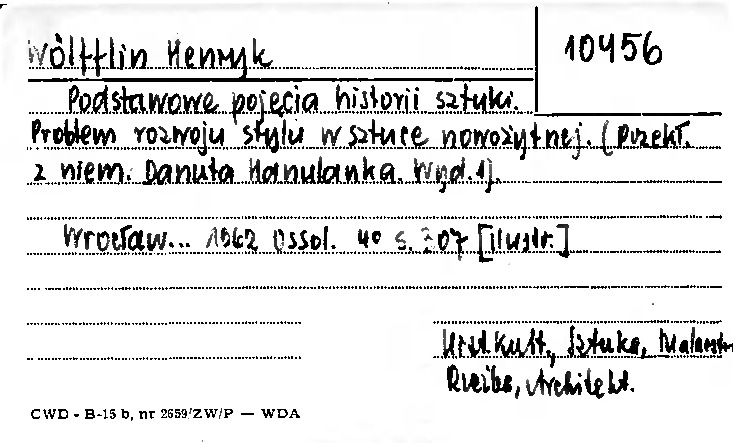 Wölfflin Henryk
10456
Podstawowe pojęcia historii sztuki.
Problem rozwoju stylu w sztuce nowożytnej. (Przekł.
z niem. Danuta Hanulanka. Wyd. 1).
Wrocław... 1962 Ossol. 4° s. 307 [ilustr.]
Hist. Kult., Sztuka, Malarstw
Rzeźba, Architekt.
CWD - B-15 b, nr 2659/ZW/P — WDA